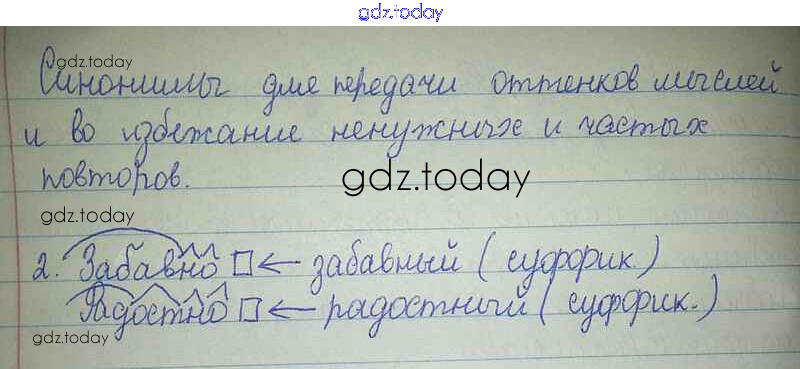 gdz.today
gdz.today
Синонимы для передачи оттенков мыслей
и во избежание ненужных и частых
повторов.
gdz.today
gdz.today
2. Забавно ← забавный (суффик.)
Радостно ← радостный (суффик.)
gdz.today